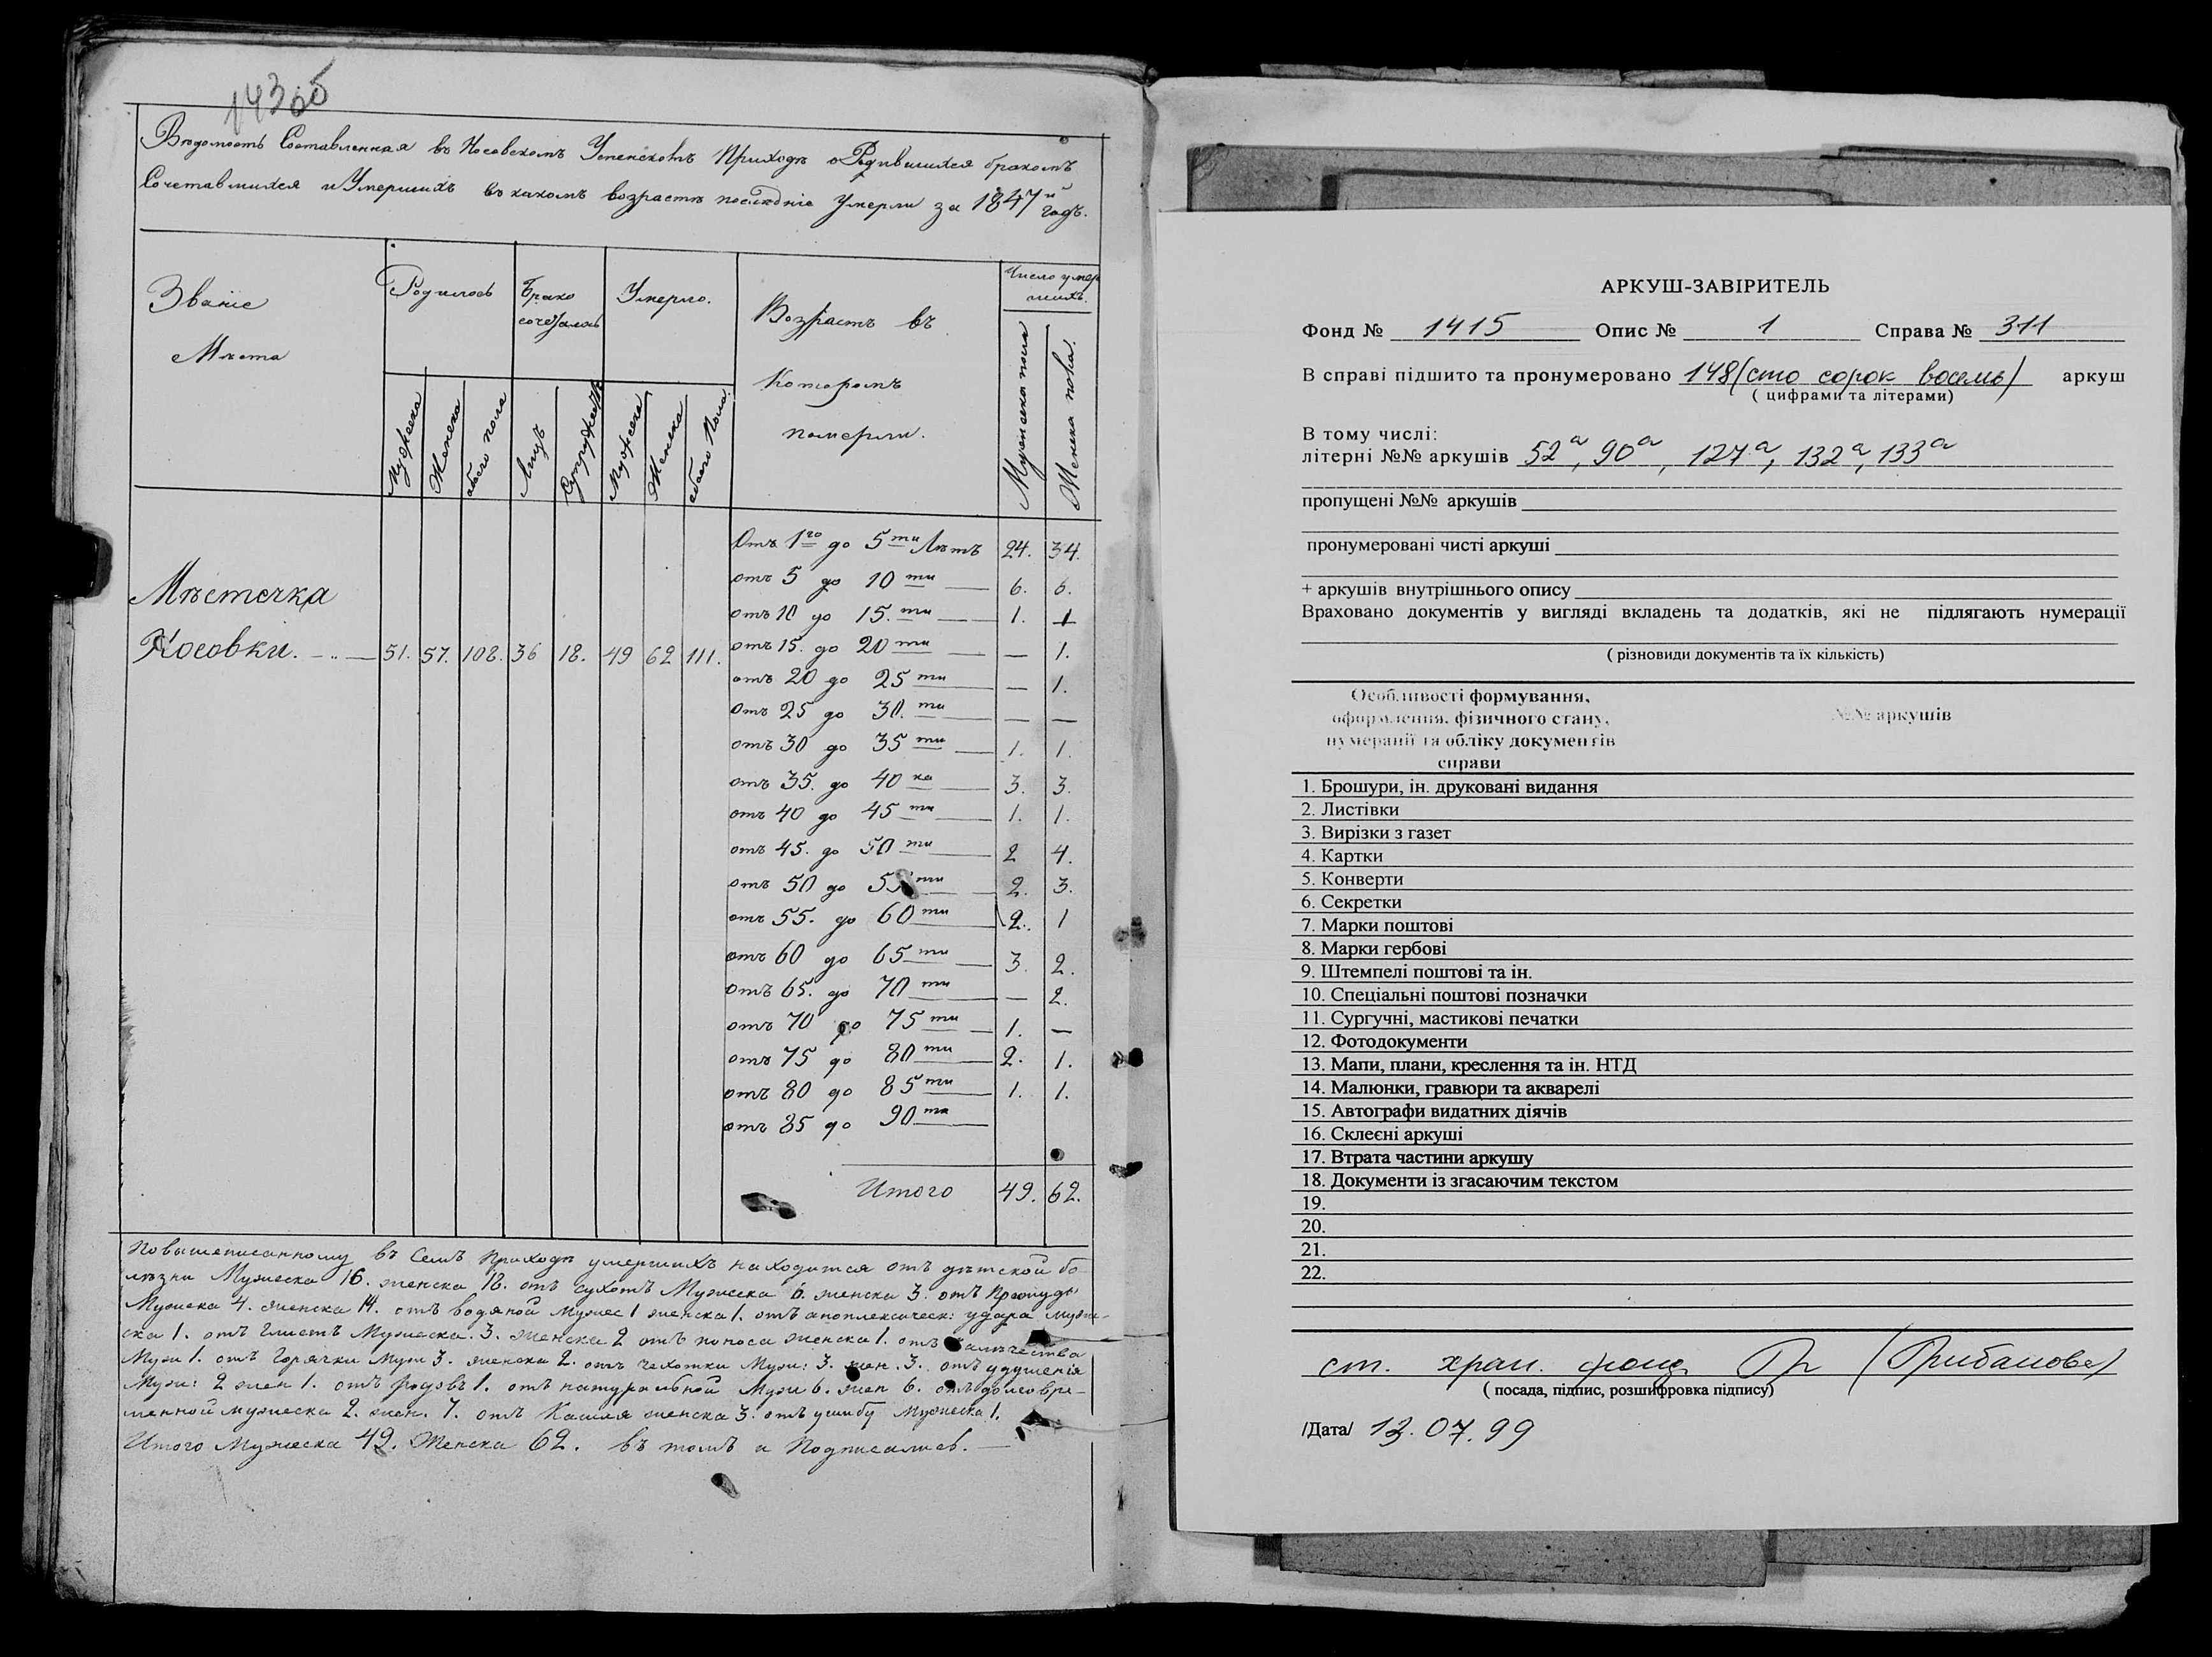 143об
Вѣдомость Составленная въ Носовскомъ Успенскомъ Приходѣ о Родившихся бракомъ
Сочетавшихся и Умершихъ въ какомъ возрастѣ послѣдніе Умерли за 1847й годъ.
Званіе
Мѣста
Родилось
Брако
сочеталось
Умерло.
Возрастъ въ
Которомъ
померли.
Число умер
шихъ.
Мужеска
Женска
обоего пола
Лицъ
Супружествъ
Мужеска
Женска
обоего Пола
Мужеска пола
Женска пола.
Мѣстечка
Носовки. 51. 57. 108. 36 18. 49 62 111.
Отъ 1го до 5ти Лѣтъ 24. 34.
отъ 5 до 10ти 6. 6.
отъ 10 до 15.ти 1. 1
отъ 15. до 20ти — 1.
отъ 20 до 25ти — 1.
отъ 25 до 30.ти — —
отъ 30 до 35ти 1. 1.
отъ 35. до 40ка 3. 3.
отъ 40 до 45ти 1. 1.
отъ 45. до 50ти 2 4.
отъ 50 до 55ти 2. 3.
отъ 55. до 60ти 2. 1
отъ 60 до 65ти 3. 2.
отъ 65. до 70ти — 2.
отъ 70 до 75ти 1. —
отъ 75 до 80ти 2. 1.
отъ 80 до 85ти 1. 1.
отъ 85 до 90та
Итого 49. 62.
Повышеписанному въ Семъ Приходѣ умершихъ находится отъ дѣтской бо
лѣзни Мужеска 16. женска 18. отъ сухотъ Мужеска 6. женска 3. отъ Простуды
Мужеска 4. женска 14. отъ водяной мужес 1 женска 1. отъ апоплексическ: удара муже-
ска 1. отъ глистъ Мужеска. 3. женска 2 отъ поноса женска 1. отъ
Муж 1. отъ Горячки Муж 3. женска 2. отъ чехотки Муж: 3. жен. 3. отъ удушенія
Муж: 2 жен 1. отъ родовъ 1. отъ натуральной Муж 6. жен 6. отъ долговре-
менной мужеска 2. жен. 7. отъ Кашля женска 3. отъ ушибу Мужеска 1.
Итого Мужеска 49. Женска 62. въ томъ и Подписались. —
АРКУШ-ЗАВІРИТЕЛЬ
Фонд № 1415 Опис № 1 Справа № 311
В справі підшито та пронумеровано 148 (сто сорок восемь) аркуш
( цифрами та літерами)
В тому числі:
літерні №№ аркушів 52а, 90а, 127а, 132а, 133а
пропущені №№ аркушів
пронумеровані чисті аркуші
+ аркушів внутрішнього опису
Враховано документів у вигляді вкладень та додатків, які не підлягають нумерації
( різновиди документів та їх кількість)
Особливості формування,
оформлення, фізичного стану,
нумерації та обліку документів
справи
№№ аркушів
1. Брошури, ін. друковані видання
2. Листівки
3. Вирізки з газет
4. Картки
5. Конверти
6. Секретки
7. Марки поштові
8. Марки гербові
9. Штемпелі поштові та ін.
10. Спеціальні поштові позначки
11. Сургучні, мастикові печатки
12. Фотодокументи
13. Мапи, плани, креслення та ін. НТД
14. Малюнки, гравюри та акварелі
15. Автографи видатних діячів
16. Склеєні аркуші
17. Втрата частини аркушу
18. Документи із згасаючим текстом
19.
20.
21.
22.
ст. хран. фонд (Грибанова)
( посада, підпис, розшифровка підпису)
/Дата/ 13.07.99